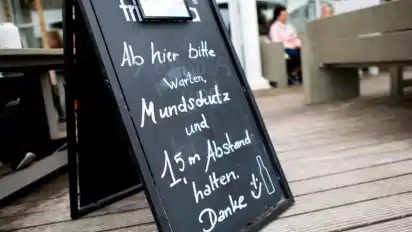 Ab hier bitte
warten,
Mundschutz
und
1,5 m Abstand
halten.
Danke